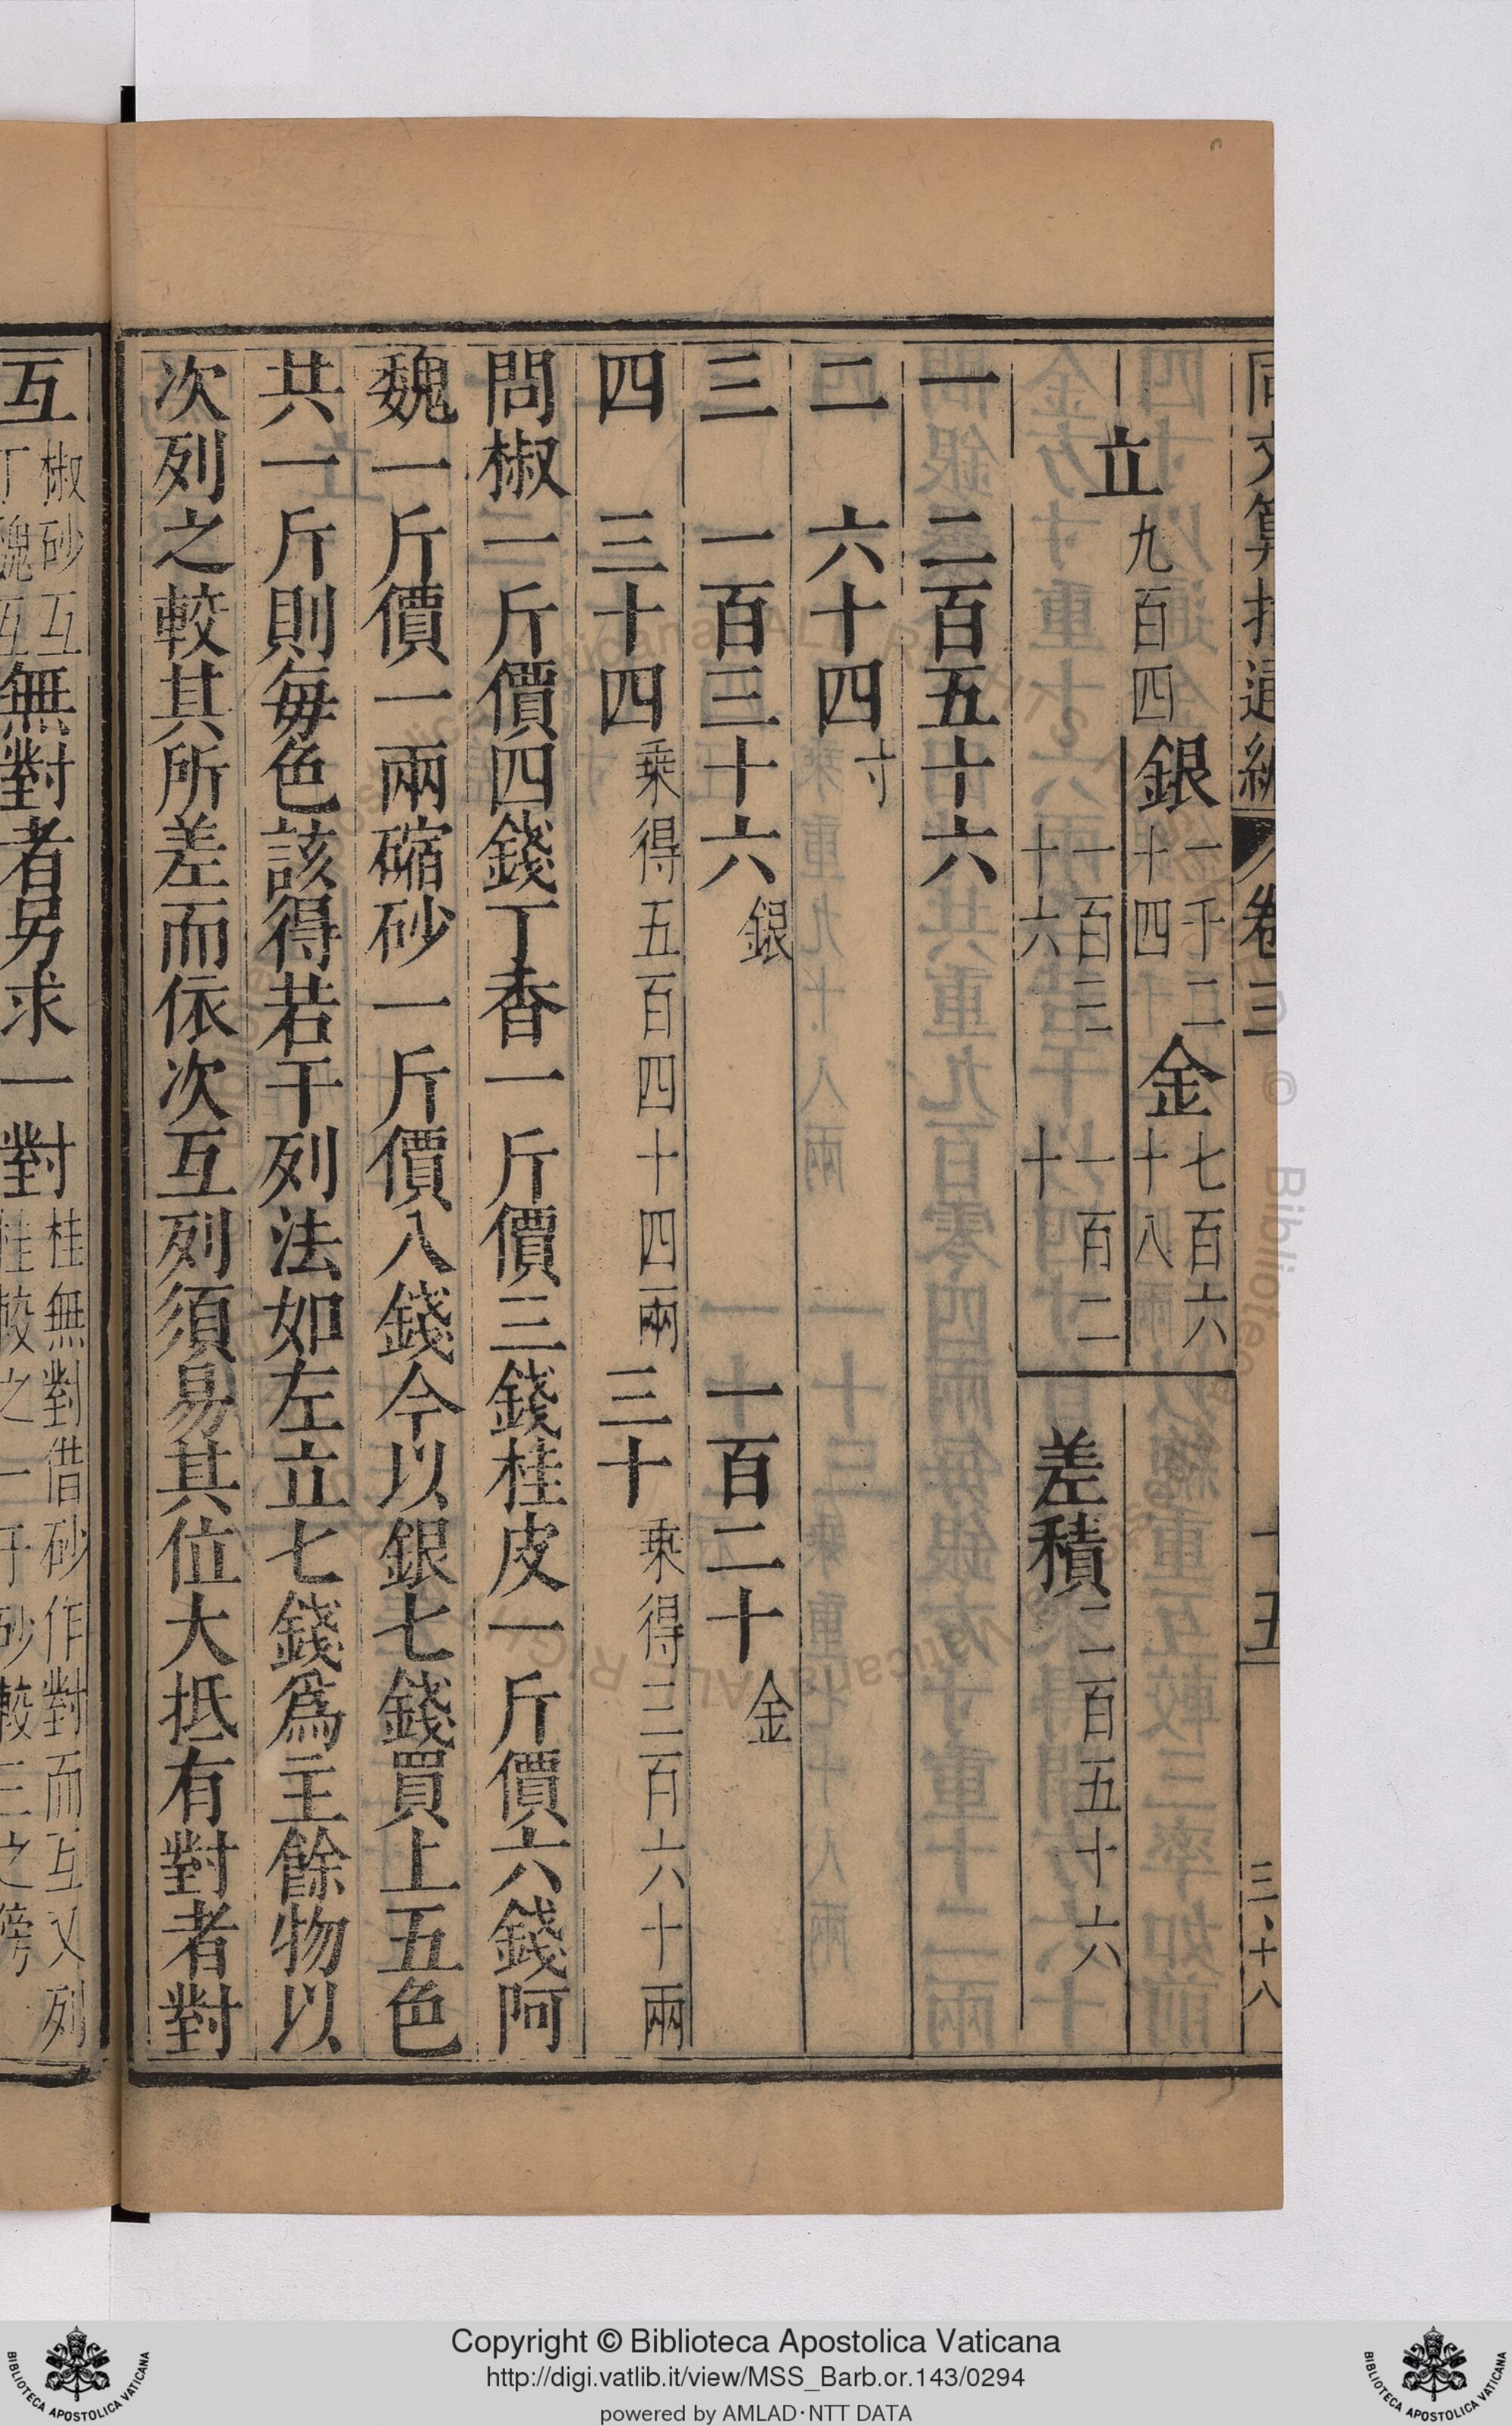 同文算指通編 卷三 十五 三·十八
立 九百四 銀 一千二十四 金 七百六十八
一百三十六 一百二十 差積 二百五十六
一 二百五十六
二 六十四寸
三 一百三十六銀 一百二十金
四 三十四 乘得五百四十四兩 三十 乘得三百六十兩
問椒一斤價四錢丁香一斤價三錢桂皮一斤價六錢阿
魏一斤價一兩縮砂一斤價八錢今以銀七錢買上五色
共一斤則每色該得若干列法如左立七錢爲主餘物以
次列之較其所差而依次互列須易其位大抵有對者對
互 椒砂互丁魏互 無對者另求一對 桂無對借砂作對而互乂列桂較之一于砂較三之傍
Copyright © Biblioteca Apostolica Vaticana
http://digi.vatlib.it/view/MSS_Barb.or.143/0294
powered by AMLAD·NTT DATA
BIBLIOTECA APOSTOLICA VATICANA
BIBLIOTECA APOSTOLICA VATICANA